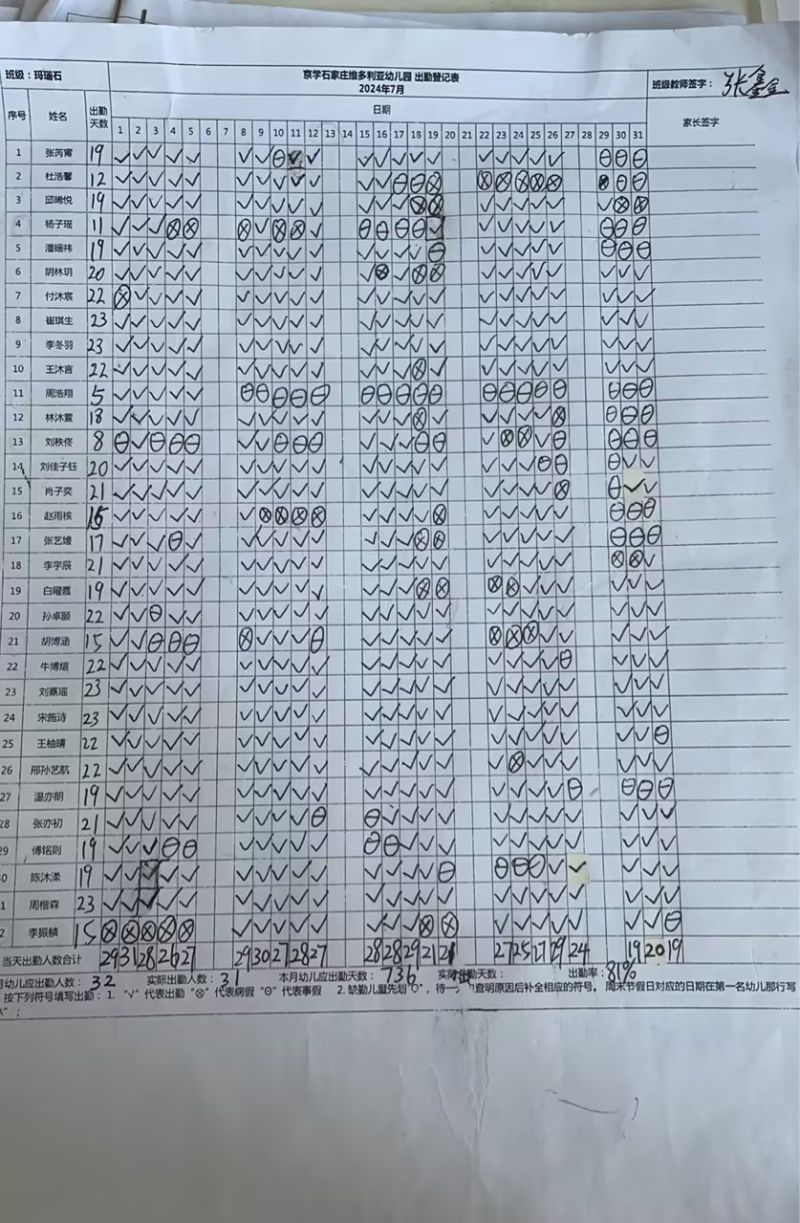 京学石家庄维多利亚幼儿园 出勤登记表
班级：玛瑙石 2024年7月 班级教师签字：张鑫
序号 姓名 出勤天数 日期 家长签字
1 2 3 4 5 6 7 8 9 10 11 12 13 14 15 16 17 18 19 20 21 22 23 24 25 26 27 28 29 30 31
1 张芮甯 19 ✓ ✓ ✓ ✓ ✓ ✓ ✓ ⊖ ✓ ✓ ✓ ✓ ✓ ✓ ✓ ✓ ✓ ✓ ✓ ✓ ⊖ ⊖ ⊖
2 杜浩馨 12 ✓ ✓ ✓ ✓ ✓ ✓ ✓ ✓ ✓ ✓ ✓ ✓ ⊖ ⊖ ⊗ ⊗ ⊗ ⊗ ⊗ ⊗ ⊖ ⊖
3 邱晞悦 19 ✓ ✓ ✓ ✓ ✓ ✓ ✓ ✓ ✓ ✓ ✓ ✓ ✓ ⊗ ⊗ ✓ ✓ ✓ ✓ ✓ ✓ ⊗ ⊗
4 杨子瑶 11 ✓ ✓ ✓ ⊗ ⊗ ⊗ ✓ ⊗ ⊗ ✓ ⊖ ⊖ ⊖ ⊖ ✓ ✓ ✓ ✓ ✓ ✓ ⊖ ⊖ ⊖
5 潘姗祎 19 ✓ ✓ ✓ ✓ ✓ ✓ ✓ ✓ ✓ ✓ ✓ ✓ ✓ ✓ ⊖ ✓ ✓ ✓ ✓ ✓ ⊖ ⊖ ⊖
6 阴林玥 20 ✓ ✓ ✓ ✓ ✓ ✓ ✓ ✓ ✓ ✓ ✓ ⊗ ✓ ⊗ ⊗ ✓ ✓ ✓ ✓ ✓ ✓ ✓ ✓
7 付沐宸 22 ⊗ ✓ ✓ ✓ ✓ ✓ ✓ ✓ ✓ ✓ ✓ ✓ ✓ ✓ ✓ ✓ ✓ ✓ ✓ ✓ ✓ ✓ ✓
8 崔琪生 23 ✓ ✓ ✓ ✓ ✓ ✓ ✓ ✓ ✓ ✓ ✓ ✓ ✓ ✓ ✓ ✓ ✓ ✓ ✓ ✓ ✓ ✓ ✓
9 李冬羽 23 ✓ ✓ ✓ ✓ ✓ ✓ ✓ ✓ ✓ ✓ ✓ ✓ ✓ ✓ ✓ ✓ ✓ ✓ ✓ ✓ ✓ ✓ ✓
10 王沐言 22 ✓ ✓ ✓ ✓ ✓ ✓ ✓ ✓ ✓ ✓ ✓ ✓ ✓ ⊗ ✓ ✓ ✓ ✓ ✓ ✓ ✓ ✓ ✓
11 周浩翔 5 ✓ ✓ ✓ ✓ ✓ ⊖ ⊖ ⊖ ⊖ ⊖ ⊖ ⊖ ⊖ ⊖ ⊖ ⊖ ⊖ ⊖ ⊖ ⊖ ⊖ ⊖ ⊖
12 林沐萱 18 ✓ ✓ ✓ ✓ ✓ ✓ ✓ ✓ ✓ ✓ ✓ ✓ ✓ ⊗ ✓ ✓ ✓ ✓ ✓ ⊗ ⊖ ⊖ ⊖
13 刘秩佟 8 ⊖ ✓ ⊖ ⊖ ⊖ ✓ ✓ ⊖ ⊖ ⊖ ✓ ✓ ✓ ⊖ ⊖ ✓ ⊗ ⊗ ✓ ⊖ ⊖ ⊖ ⊖
14 刘佳子钰 20 ✓ ✓ ✓ ✓ ✓ ✓ ✓ ✓ ✓ ✓ ✓ ✓ ✓ ✓ ✓ ✓ ✓ ✓ ⊖ ⊖ ⊖ ✓ ✓
15 肖子奕 21 ✓ ✓ ✓ ✓ ✓ ✓ ✓ ✓ ✓ ✓ ✓ ✓ ✓ ✓ ✓ ✓ ✓ ✓ ✓ ⊗ ⊖ ✓ ✓
16 赵雨桉 15 ✓ ✓ ✓ ✓ ✓ ✓ ⊗ ⊗ ⊗ ⊗ ✓ ✓ ✓ ✓ ⊗ ✓ ✓ ✓ ✓ ✓ ⊖ ⊖ ⊖
17 张艺嫒 17 ✓ ✓ ✓ ⊖ ✓ ✓ ✓ ✓ ✓ ✓ ✓ ✓ ✓ ⊗ ⊗ ✓ ✓ ✓ ✓ ✓ ⊖ ⊖ ⊖
18 李宇辰 21 ✓ ✓ ✓ ✓ ✓ ✓ ✓ ✓ ✓ ✓ ✓ ✓ ✓ ✓ ✓ ✓ ✓ ✓ ✓ ✓ ⊗ ⊗ ✓
19 白曈嘉 19 ✓ ✓ ✓ ✓ ✓ ✓ ✓ ✓ ✓ ✓ ✓ ✓ ✓ ⊗ ⊗ ⊗ ⊗ ✓ ✓ ✓ ✓ ✓ ✓
20 孙卓颐 22 ✓ ✓ ⊖ ✓ ✓ ✓ ✓ ✓ ✓ ✓ ✓ ✓ ✓ ✓ ✓ ✓ ✓ ✓ ✓ ✓ ✓ ✓ ✓
21 胡博涵 15 ✓ ✓ ⊖ ⊖ ⊖ ⊗ ✓ ✓ ✓ ⊖ ✓ ✓ ✓ ✓ ✓ ⊗ ⊗ ⊗ ✓ ✓ ✓ ✓ ✓
22 牛博煊 22 ✓ ✓ ✓ ✓ ✓ ✓ ✓ ✓ ✓ ✓ ✓ ✓ ✓ ✓ ✓ ✓ ✓ ✓ ✓ ⊖ ✓ ✓ ✓
23 刘熹瑶 23 ✓ ✓ ✓ ✓ ✓ ✓ ✓ ✓ ✓ ✓ ✓ ✓ ✓ ✓ ✓ ✓ ✓ ✓ ✓ ✓ ✓ ✓ ✓
24 宋施诗 23 ✓ ✓ ✓ ✓ ✓ ✓ ✓ ✓ ✓ ✓ ✓ ✓ ✓ ✓ ✓ ✓ ✓ ✓ ✓ ✓ ✓ ✓ ✓
25 王柚晴 22 ✓ ✓ ✓ ✓ ✓ ✓ ✓ ✓ ✓ ✓ ✓ ✓ ✓ ✓ ✓ ✓ ✓ ✓ ✓ ✓ ✓ ✓ ⊖
26 邢孙艺航 22 ✓ ✓ ✓ ✓ ✓ ✓ ✓ ✓ ✓ ✓ ✓ ✓ ✓ ✓ ✓ ✓ ⊗ ✓ ✓ ✓ ✓ ✓ ✓
27 温亦朗 19 ✓ ✓ ✓ ✓ ✓ ✓ ✓ ✓ ✓ ✓ ✓ ✓ ✓ ✓ ✓ ✓ ✓ ✓ ✓ ⊖ ⊖ ⊖ ⊖
28 张亦初 21 ✓ ✓ ✓ ✓ ✓ ✓ ✓ ✓ ✓ ⊖ ⊖ ✓ ✓ ✓ ✓ ✓ ✓ ✓ ✓ ✓ ✓ ✓ ✓
29 傅铭则 19 ✓ ✓ ✓ ⊖ ⊖ ✓ ✓ ✓ ✓ ✓ ⊖ ⊖ ✓ ✓ ✓ ✓ ✓ ✓ ✓ ✓ ✓ ✓ ✓
0 陈沐潇 19 ✓ ✓ ✓ ✓ ✓ ✓ ✓ ✓ ✓ ✓ ✓ ✓ ✓ ✓ ⊖ ⊖ ⊖ ⊖ ✓ ✓ ✓ ✓ ✓
1 周楷森 23 ✓ ✓ ✓ ✓ ✓ ✓ ✓ ✓ ✓ ✓ ✓ ✓ ✓ ✓ ✓ ✓ ✓ ✓ ✓ ✓ ✓ ✓ ✓
2 李振麟 15 ⊗ ⊗ ⊗ ⊗ ⊗ ✓ ✓ ✓ ✓ ✓ ✓ ✓ ✓ ⊗ ⊗ ✓ ✓ ✓ ✓ ✓ ✓ ✓ ⊖
当天出勤人数合计 29 31 28 26 27 29 30 27 28 27 28 28 29 21 21 27 25 27 29 24 19 20 19
月幼儿应出勤人数：32 实际出勤人数：31 本月幼儿应出勤天数：736 出勤天数： 出勤率：81%
按下列符号填写出勤：1. "√" 代表出勤 "⊗" 代表病假 "⊖" 代表事假 2. 缺勤儿童先划"O"，待 查明原因后补全相应的符号。 周末节假日对应的日期在第一名幼儿那行写
"；